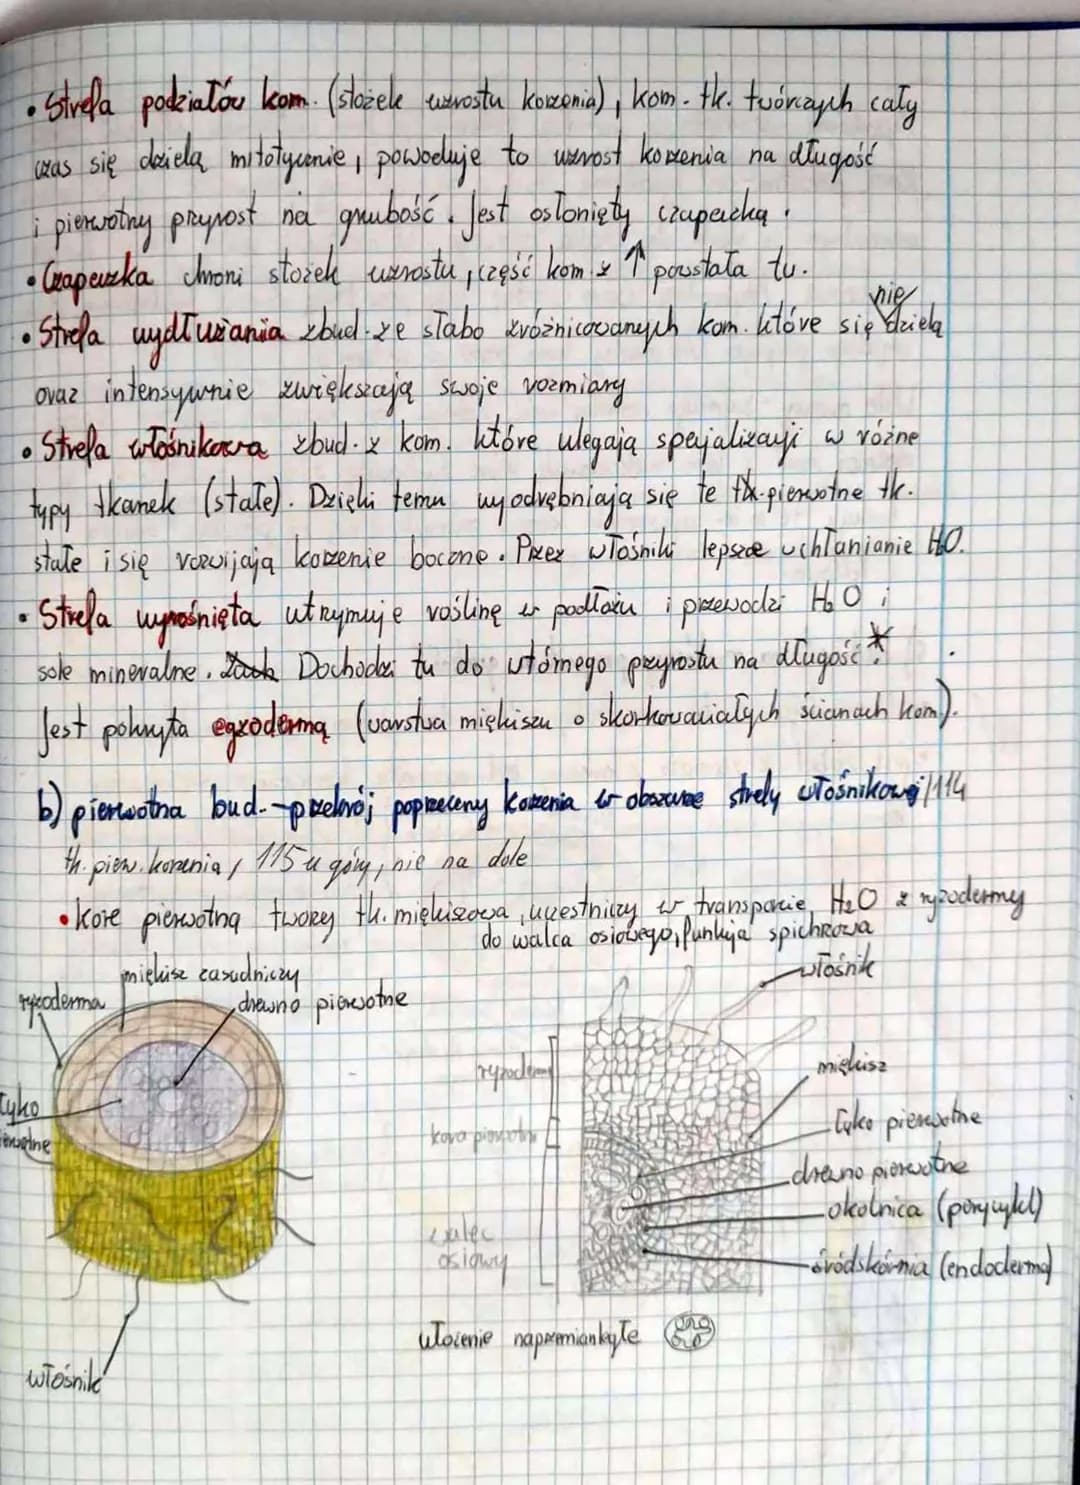 • Strefa podziałów kom. (stożek wzrostu korzenia), kom. tk. twórczych cały
czas się dzielą mitotycznie, powoduje to wzrost korzenia na długość
i pierwotny przyrost na grubość. Jest osłonięty czapeczką.
• Czapeczka chroni stożek wzrostu, część kom. z ↑ powstała tu.
• Strefa wydłużania zbud. ze słabo zróżnicowanych kom. które się nie dzielą
oraz intensywnie zwiększają swoje rozmiary
• Strefa włośnikowa zbud. z kom. które ulegają specjalizacji w różne
typy tkanek (stałe). Dzięki temu wyodrębniają się te pierwotne tk.
stałe i się rozwijają korzenie boczne. Przez włośniki lepsze uchłanianie H₂O.
• Strefa wyrośnięta utrzymuje roślinę w podłożu i przewodzi H₂O i
sole mineralne. Dochodzi tu do wtórnego przyrostu na długość*.
Jest pokryta egzodermą (warstwa miękiszu o skorkowaciałych ścianach kom).
b) pierwotna bud. - przekrój poprzeczny korzenia w obszarze strefy włośnikowej/114
tk. pierw. korzenia, 115 u góry, nie na dole
• korę pierwotną tworzy tk. miękiszowa, uczestniczy w transporcie H₂O z ryzodermy
do walca osiowego, funkcja spichrzowa
miękisz zasadniczy
ryzoderma
drewno pierwotne
łyko
pierwotne
włośnik
włośnik
ryzoderma
kora pierwotna
walec
osiowy
miękisz
łyko pierwotne
drewno pierwotne
okolnica (perycykl)
śródskórnia (endoderma)
ułożenie naprzemianległe